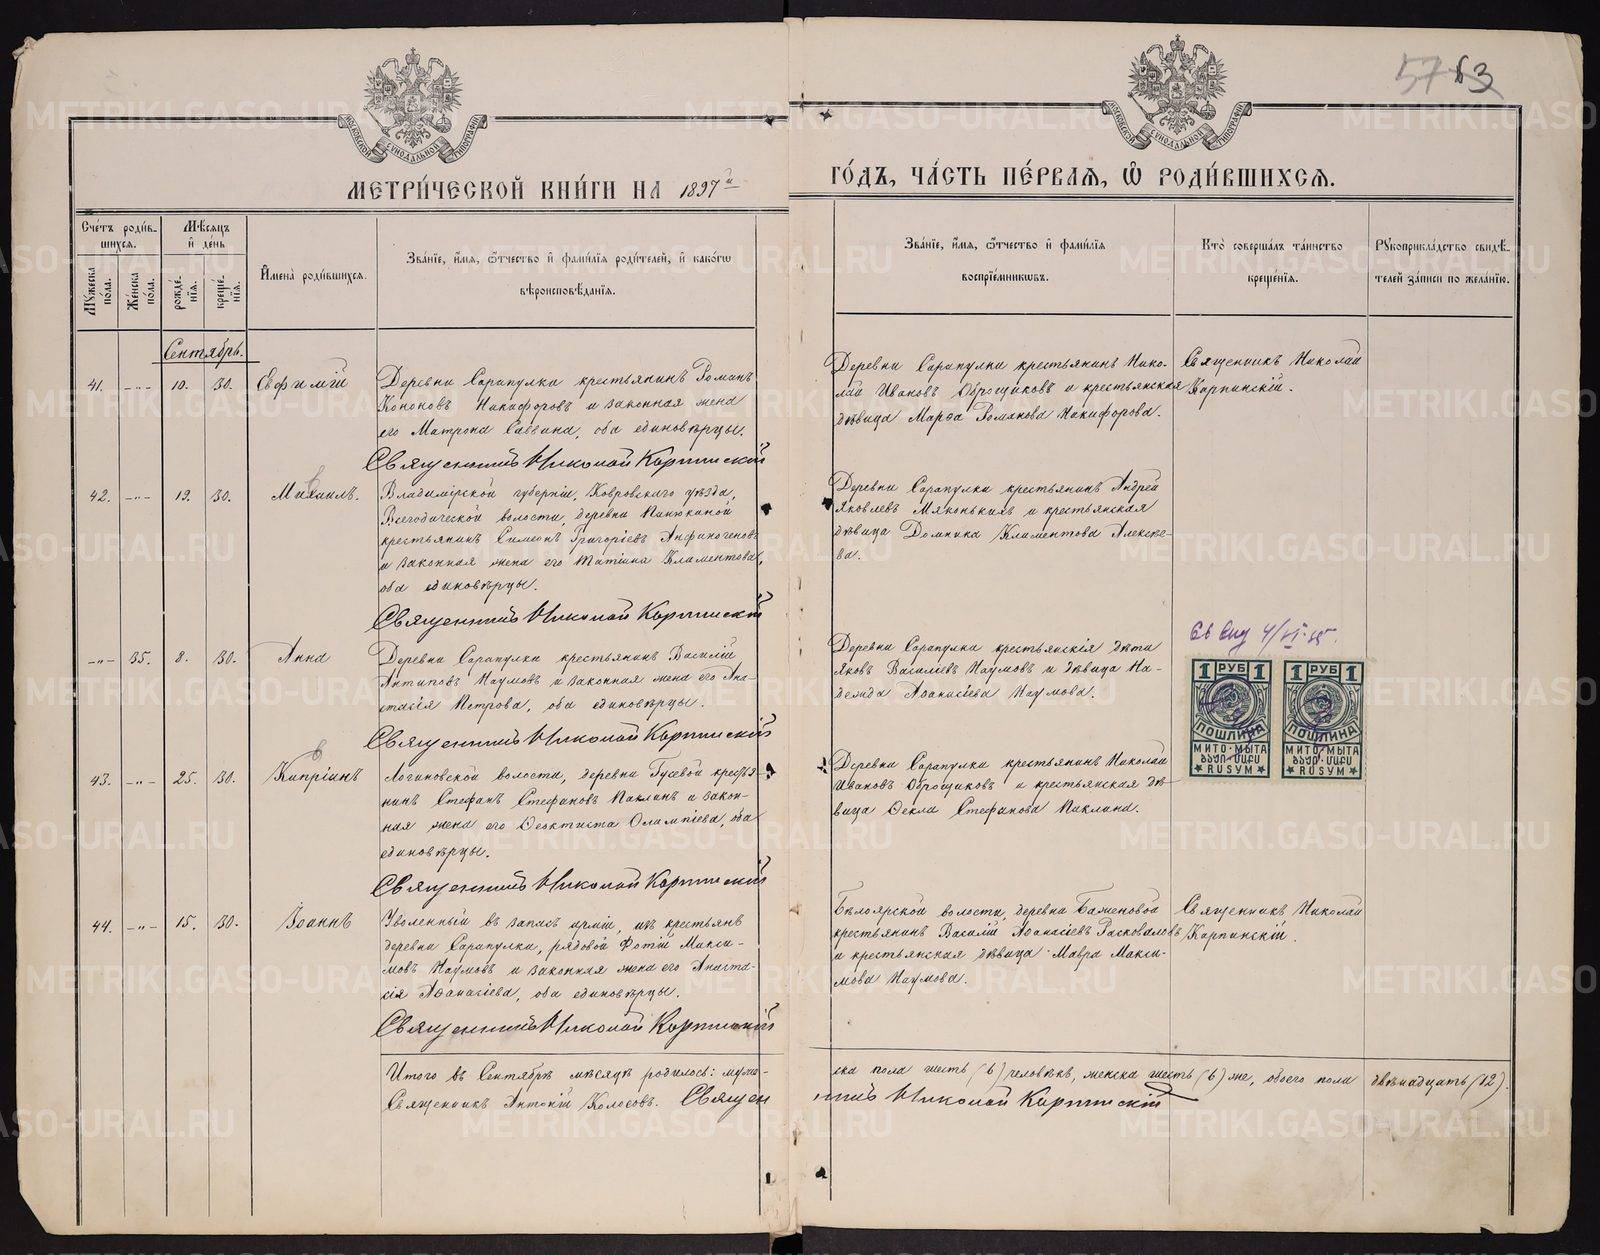 57 63
МОСКОВСКОЙ СѴНОДАЛЬНОЙ ТИПОГРАФІИ
МОСКОВСКОЙ СѴНОДАЛЬНОЙ ТИПОГРАФІИ
МЕТРИ́ЧЕСКОЙ КНИ́ГИ НА 1897й
ГО́ДЪ, ЧА́СТЬ ПЕ́РВАѦ, Ѽ РОДИ́ВШИХСѦ.
Сче́тъ роди́в-
шихся.
Мѣ́сяцъ
и҆ день
Мꙋжеска пола.
Же́нска пола.
рожде́-
нїя.
креще́-
нїя.
И҆мена̀ роди́вшихся.
Зва́нїе, и҆́мя, ѻ҆́тчество и҆ фами́лїя роди́телей, и҆ како́гѡ
вѣроисповѣ́данїя.
Зва́нїе, и҆́мя, ѻ҆́тчество и҆ фами́лїя
воспрїе́мникѡвъ.
Кто̀ соверша́лъ та́инство
креще́нїя.
Рꙋкоприкла́дство свидѣ́-
телей за́писи по жела́нїю.
Сентябрь.
41. -"- 10. 30. Евфимій
Деревни Сарапулки крестьянинъ Романъ
Кононовъ Никифоровъ и законная жена
его Матрона Саввина, оба единовѣрцы.
Священникъ Николай Карпинскій
Деревни Сарапулки крестьянинъ Нико-
лай Ивановъ Оброщиковъ и крестьянская
дѣвица Марѳа Романова Никифорова.
Священникъ Николай
Карпинскій.
42. -"- 19. 30. Михаилъ.
Владимірской губерніи, Ковровскаго уѣзда,
Всегодической волости, деревни Панюкиной
крестьянинъ Симеонъ Григоріевъ Анфиногеновъ
и законная жена его Татіана Климентова,
оба единовѣрцы.
Священникъ Николай Карпинскій
Деревни Сарапулки крестьянинъ Андрей
Яковлевъ Мяконькихъ и крестьянская
дѣвица Домника Климентова Алексѣе-
ва.
-"- 35. 8. 30. Анна
Деревни Сарапулки крестьянинъ Василій
Антиповъ Наумовъ и законная жена его Ана-
стасія Петрова, оба единовѣрцы.
Священникъ Николай Карпинскій
Деревни Сарапулки крестьянскія дѣти
Яковъ Василіевъ Наумовъ и дѣвица На-
дежда Аѳанасіева Наумова.
1 РУБ 1
ПОШЛИНА
МИТО·МЫТА
RUSYM
1 РУБ 1
ПОШЛИНА
МИТО·МЫТА
RUSYM
43. -"- 25. 30. Кипріанъ
Логиновской волости, деревни Гусевой кресть-
нинъ Стефанъ Стефановъ Паклинъ и закон-
ная жена его Ѳеоктиста Олимпіева, оба
единовѣрцы.
Священникъ Николай Карпинскій
Деревни Сарапулки крестьянинъ Николай
Ивановъ Оброщиковъ и крестьянская дѣ-
вица Ѳекла Стефанова Паклина.
44. -"- 15. 30. Іоаннъ
Уволенный въ запасъ арміи, изъ крестьянъ
деревни Сарапулки, рядовой Фотій Макси-
мовъ Наумовъ и законная жена его Анаста-
сія Аѳанасіева, оба единовѣрцы.
Священникъ Николай Карпинскій
Бѣлоярской волости, деревни Баженовой
крестьянинъ Василій Аѳанасіевъ Расковаловъ
и крестьянская дѣвица Мавра Макси-
мова Наумова.
Священникъ Николай
Карпинскій.
Итого въ Сентябрѣ мѣсяцѣ родилось: муже-
ска пола шесть (6) человѣкъ, женска шесть (6) же, обоего пола двѣнадцать (12).
Священникъ Антоній Колосовъ. Священ
никъ Николай Карпинскій
METRIKI.GASO-URAL.RU